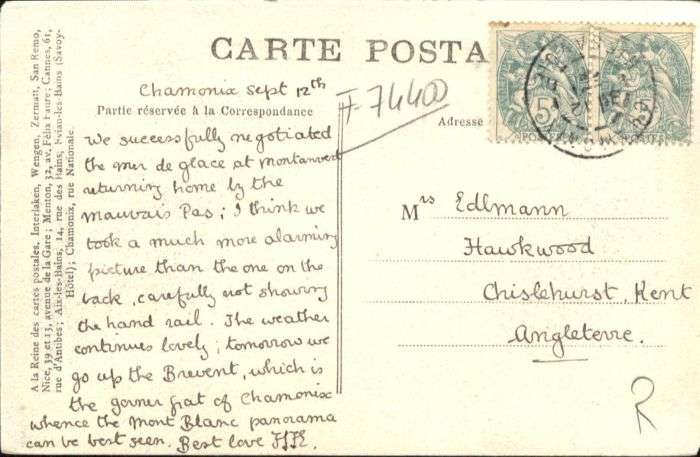 CARTE POSTA
Chamonix Sept 12th
F-74400
Partie réservée à la Correspondance
Adresse
We successfully negotiated
the mer de glace at montanvert
returning home by the
mauvais Pas; I think we
took a much more alarming
picture than the one on the
back, carefully not showing
the hand rail. The weather
continues lovely; tomorrow we
go up the Brevent, which is
the gorner grat of Chamonix
whence the Mont Blanc panorama
can be best seen. Best love
Mrs Edlmann
Hawkwood
Chislehurst, Kent
Angleterre.
R
A la Reine des cartes postales, Interlaken, Wengen, Zermatt, San Remo,
Nice, 39 et 13, avenue de la Gare; Menton, 32, av. Félix Faure; Cannes, 61,
rue d'Antibes; Aix-les-Bains, 14, rue des Bains; Evian-les-Bains (Savoy-
Hôtel); Chamonix, rue Nationale.
5c
POSTES
POSTES